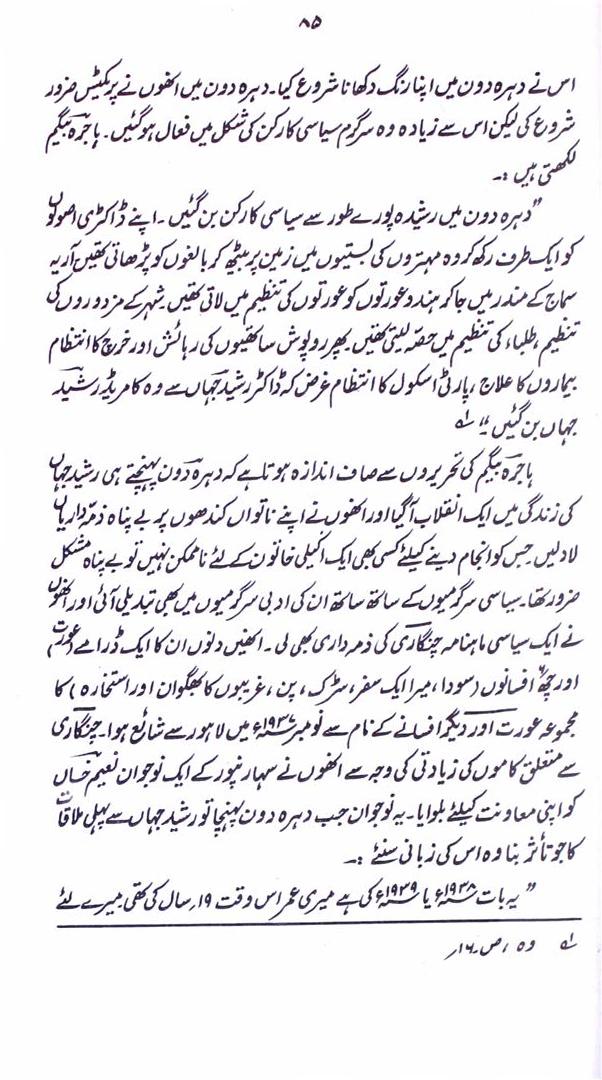 ۸۵
اس نے دہرہ دون میں اپنا رنگ دکھانا شروع کیا۔ دہرہ دون میں انھوں نے پریکٹیس ضرور
شروع کی لیکن اس سے زیادہ وہ سرگرم سیاسی کارکن کی شکل میں فعال ہوگئیں۔ ہاجرہ بیگم
لکھتی ہیں :۔
”دہرہ دون میں رشیدہ پورے طور سے سیاسی کارکن بن گئیں ۔ اپنے ڈاکٹری اصولوں
کو ایک طرف رکھ کر وہ مہتروں کی بستیوں میں زمین پر بیٹھ کر بالغوں کو پڑھاتی تھیں آریہ
سماج کے مندر میں جاکر ہندو عورتوں کو عورتوں کی تنظیم میں لاتی تھیں۔ شہر کے مزدوروں کی
تنظیم، طلباء کی تنظیم میں حصّہ لیتی تھیں۔ پھر روپوش ساتھیوں کی رہائش اور خرچ کا انتظام
بیماروں کا علاج، پارٹی اسکول کا انتظام غرض کہ ڈاکٹر رشید جہاں سے وہ کامریڈ رشید
جہاں بن گئیں۔“ ؎۱
ہاجرہ بیگم کی تحریروں سے صاف اندازہ ہوتا ہے کہ دہرہ دون پہنچتے ہی رشید جہاں
کی زندگی میں ایک انقلاب آگیا اور انھوں نے اپنے ناتواں کندھوں پر بے پناہ ذمّہ داریاں
لادلیں۔ جس کو انجام دینے کیلئے کسی بھی ایک اکیلی خاتون کے لئے ناممکن نہیں تو بے پناہ مشکل
ضرور تھا۔ سیاسی سرگرمیوں کے ساتھ ساتھ ان کی ادبی سرگرمیوں میں بھی تبدیلی آئی اور انھوں
نے ایک سیاسی ماہنامہ چنگاری کی ذمہ داری بھی لی ۔ انھیں دنوں ان کا ایک ڈرامے (عورت)
اور چھ افسانوں (سودا، میرا ایک سفر، سڑک، پن، غریبوں کا بھگوان اور استخارہ) کا
مجموعہ عورت اور دیگر افسانے کے نام سے نومبر ۱۹۳۷ء میں لاہور سے شائع ہوا۔ چنگاری
سے متعلق کاموں کی زیادتی کی وجہ سے انھوں نے سہارنپور کے ایک نوجوان نعیم خاں
کو اپنی معاونت کیلئے بلوایا۔ یہ نوجوان جب دہرہ دون پہنچا تو رشید جہاں سے پہلی ملاقات
کا جو تأثر بنا وہ اس کی زبانی سنئے :۔
”یہ بات ۱۹۳۸ء یا ۱۹۳۹ء کی ہے میری عمر اس وقت ۱۹؍سال کی تھی میرے لئے
؎۱ وہ ، ص۔۱۶؍